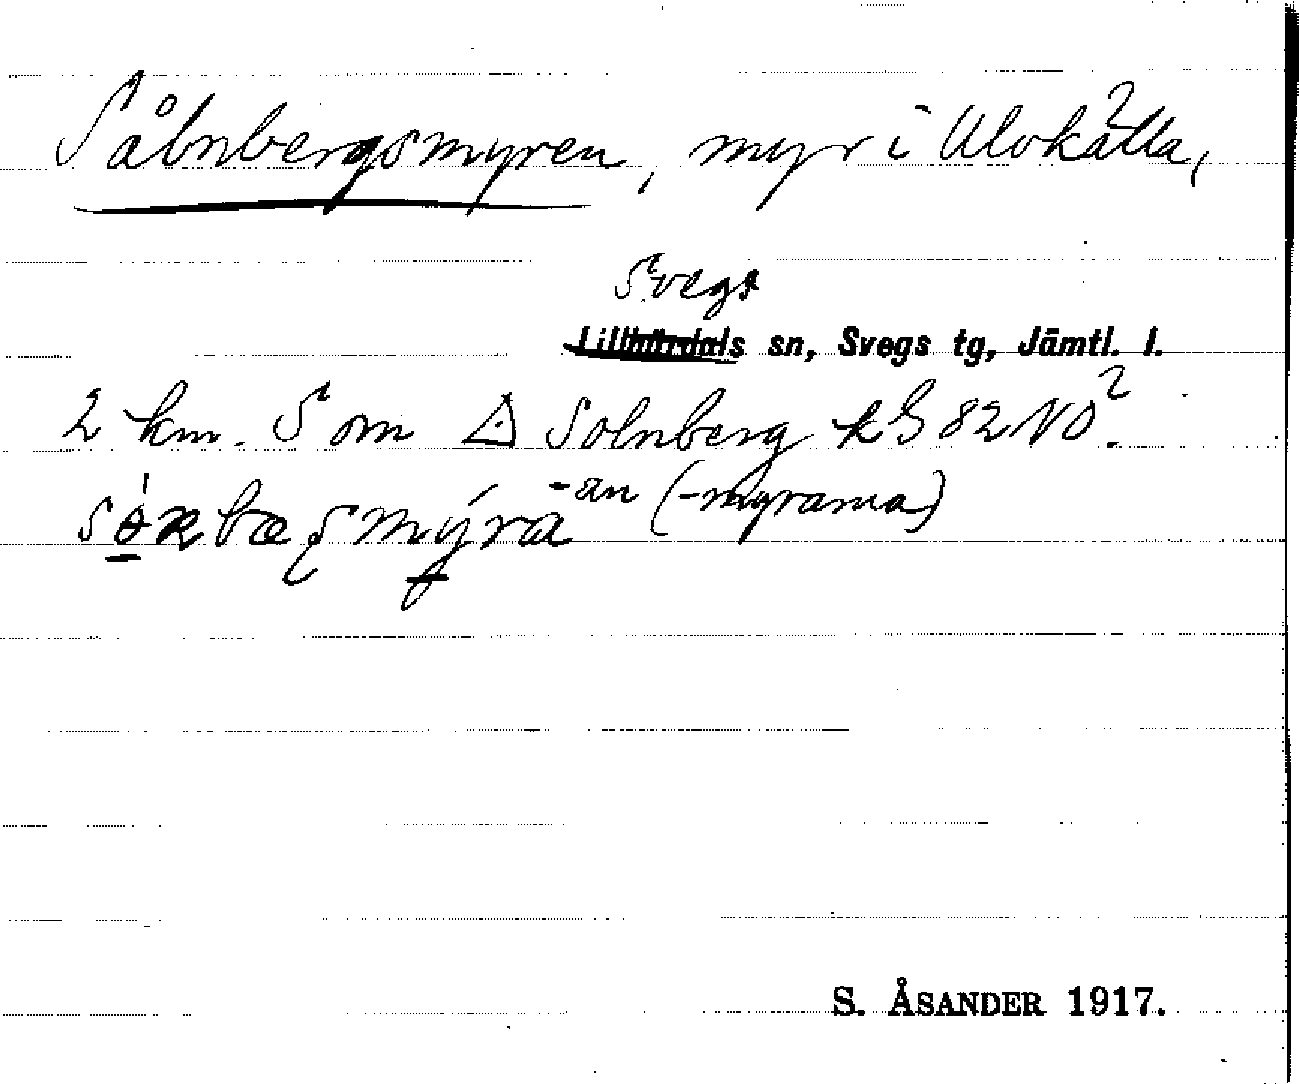 Sålnbergsmyren, myr i Ulvkälla,
Svegs
Lillhärdals sn, Svegs tg, Jämtl. l.
2 km. S om △ Solnberg kG 82 NO?
-an (-myrarna)
S. ÅSANDER 1917.